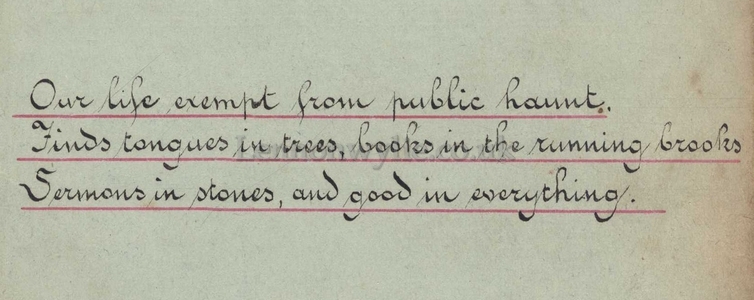 Our life exempt from public haunt.
Finds tongues in trees, books in the running brooks
Sermons in stones, and good in everything.